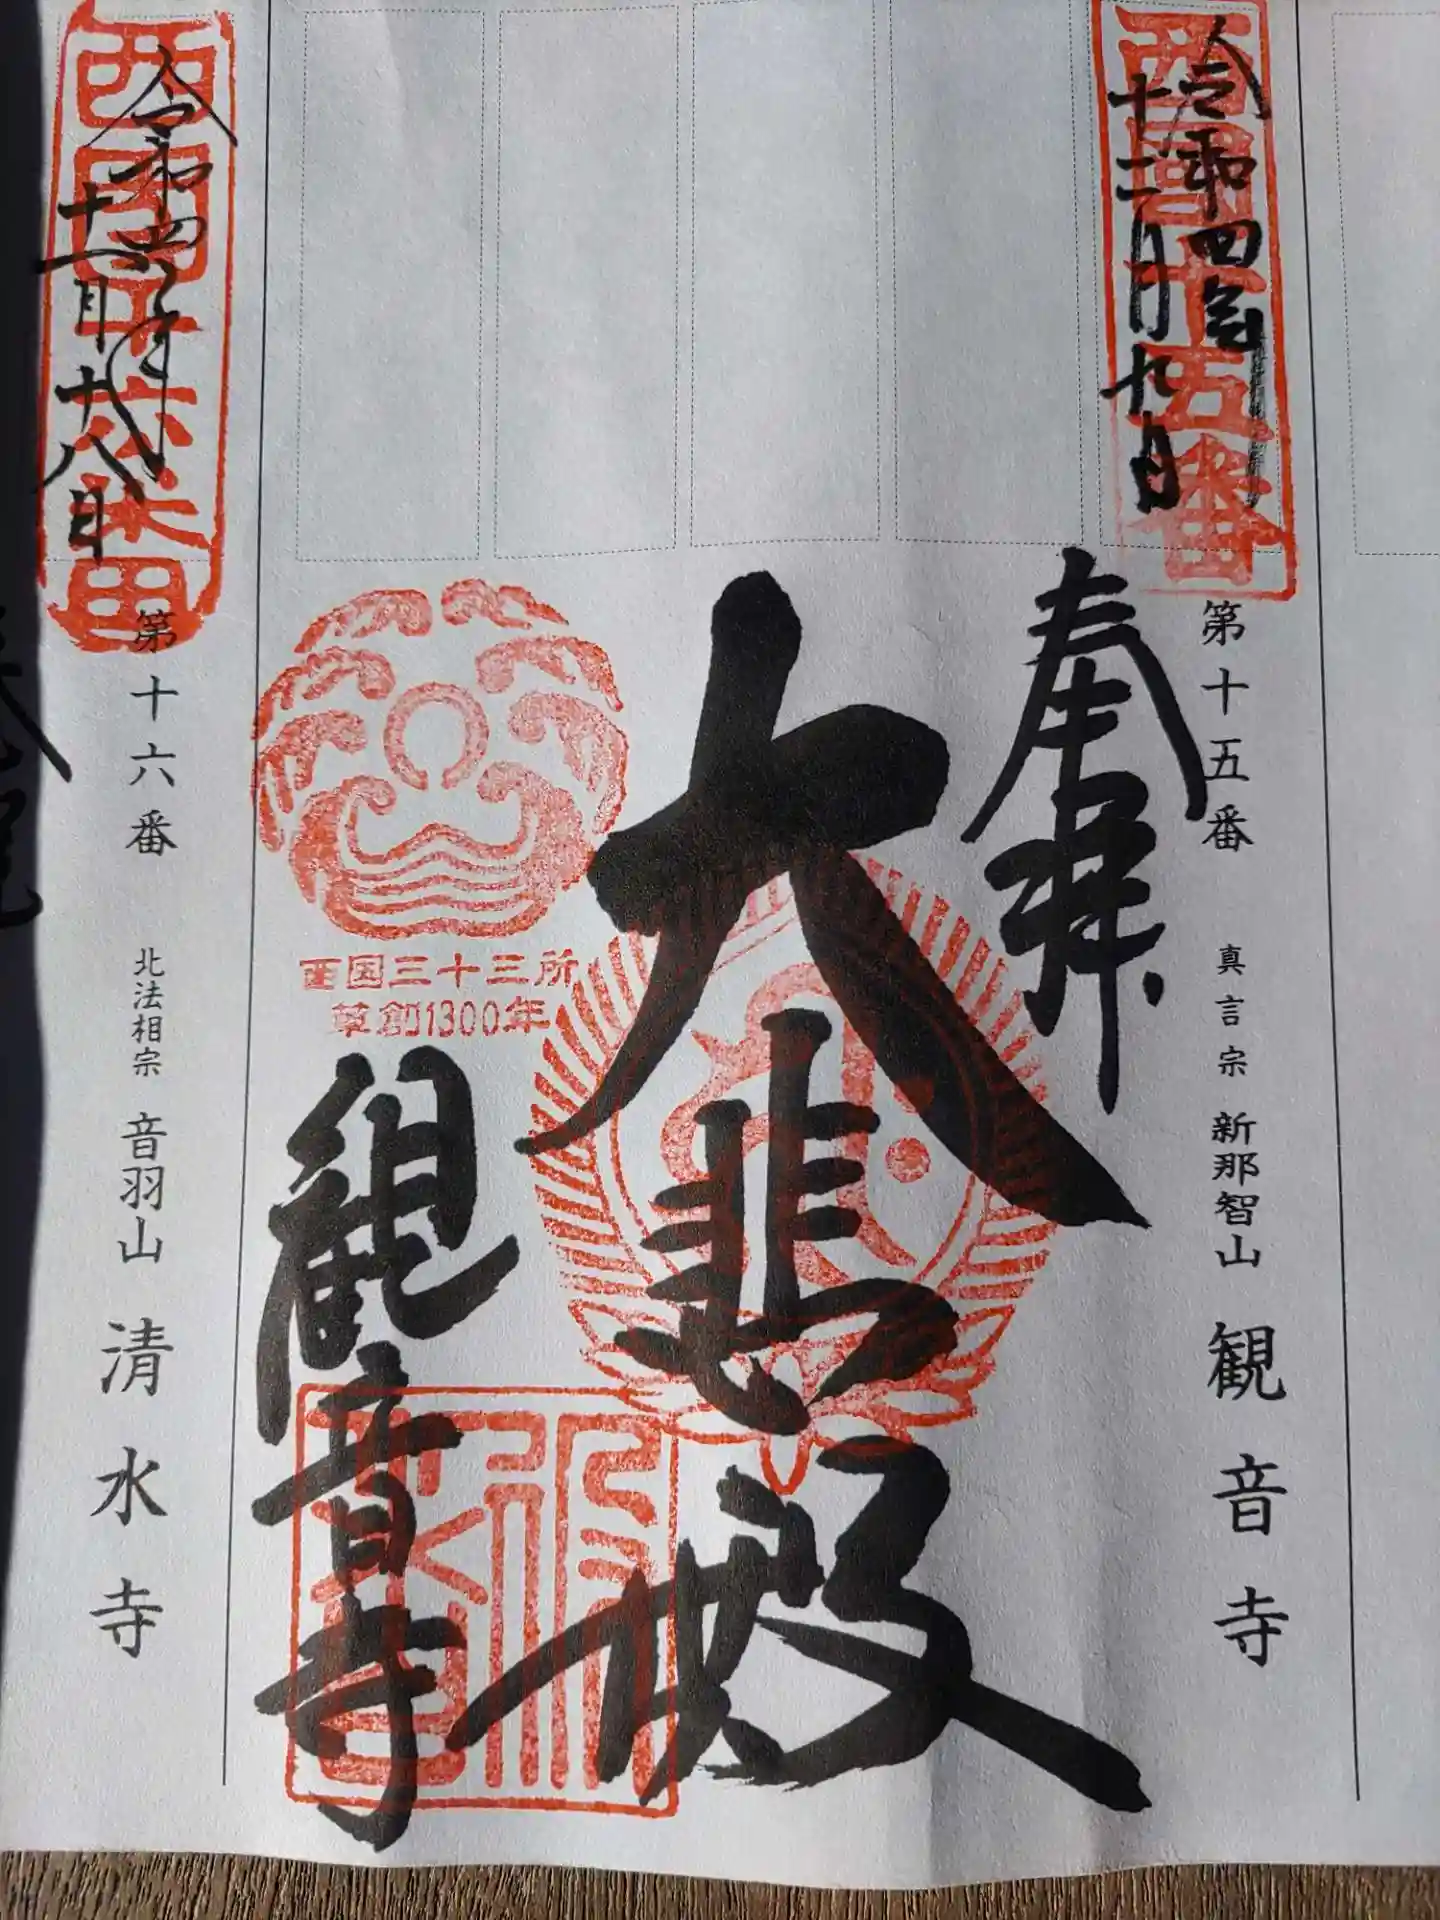 西国十五番
令和四年
十二月九日
第十五番 真言宗 新那智山 観音寺
奉拝
大悲殿
西国三十三所
草創1300年
観音寺
西国十六番
令和四年
十一月十八日
第十六番 北法相宗 音羽山 清水寺